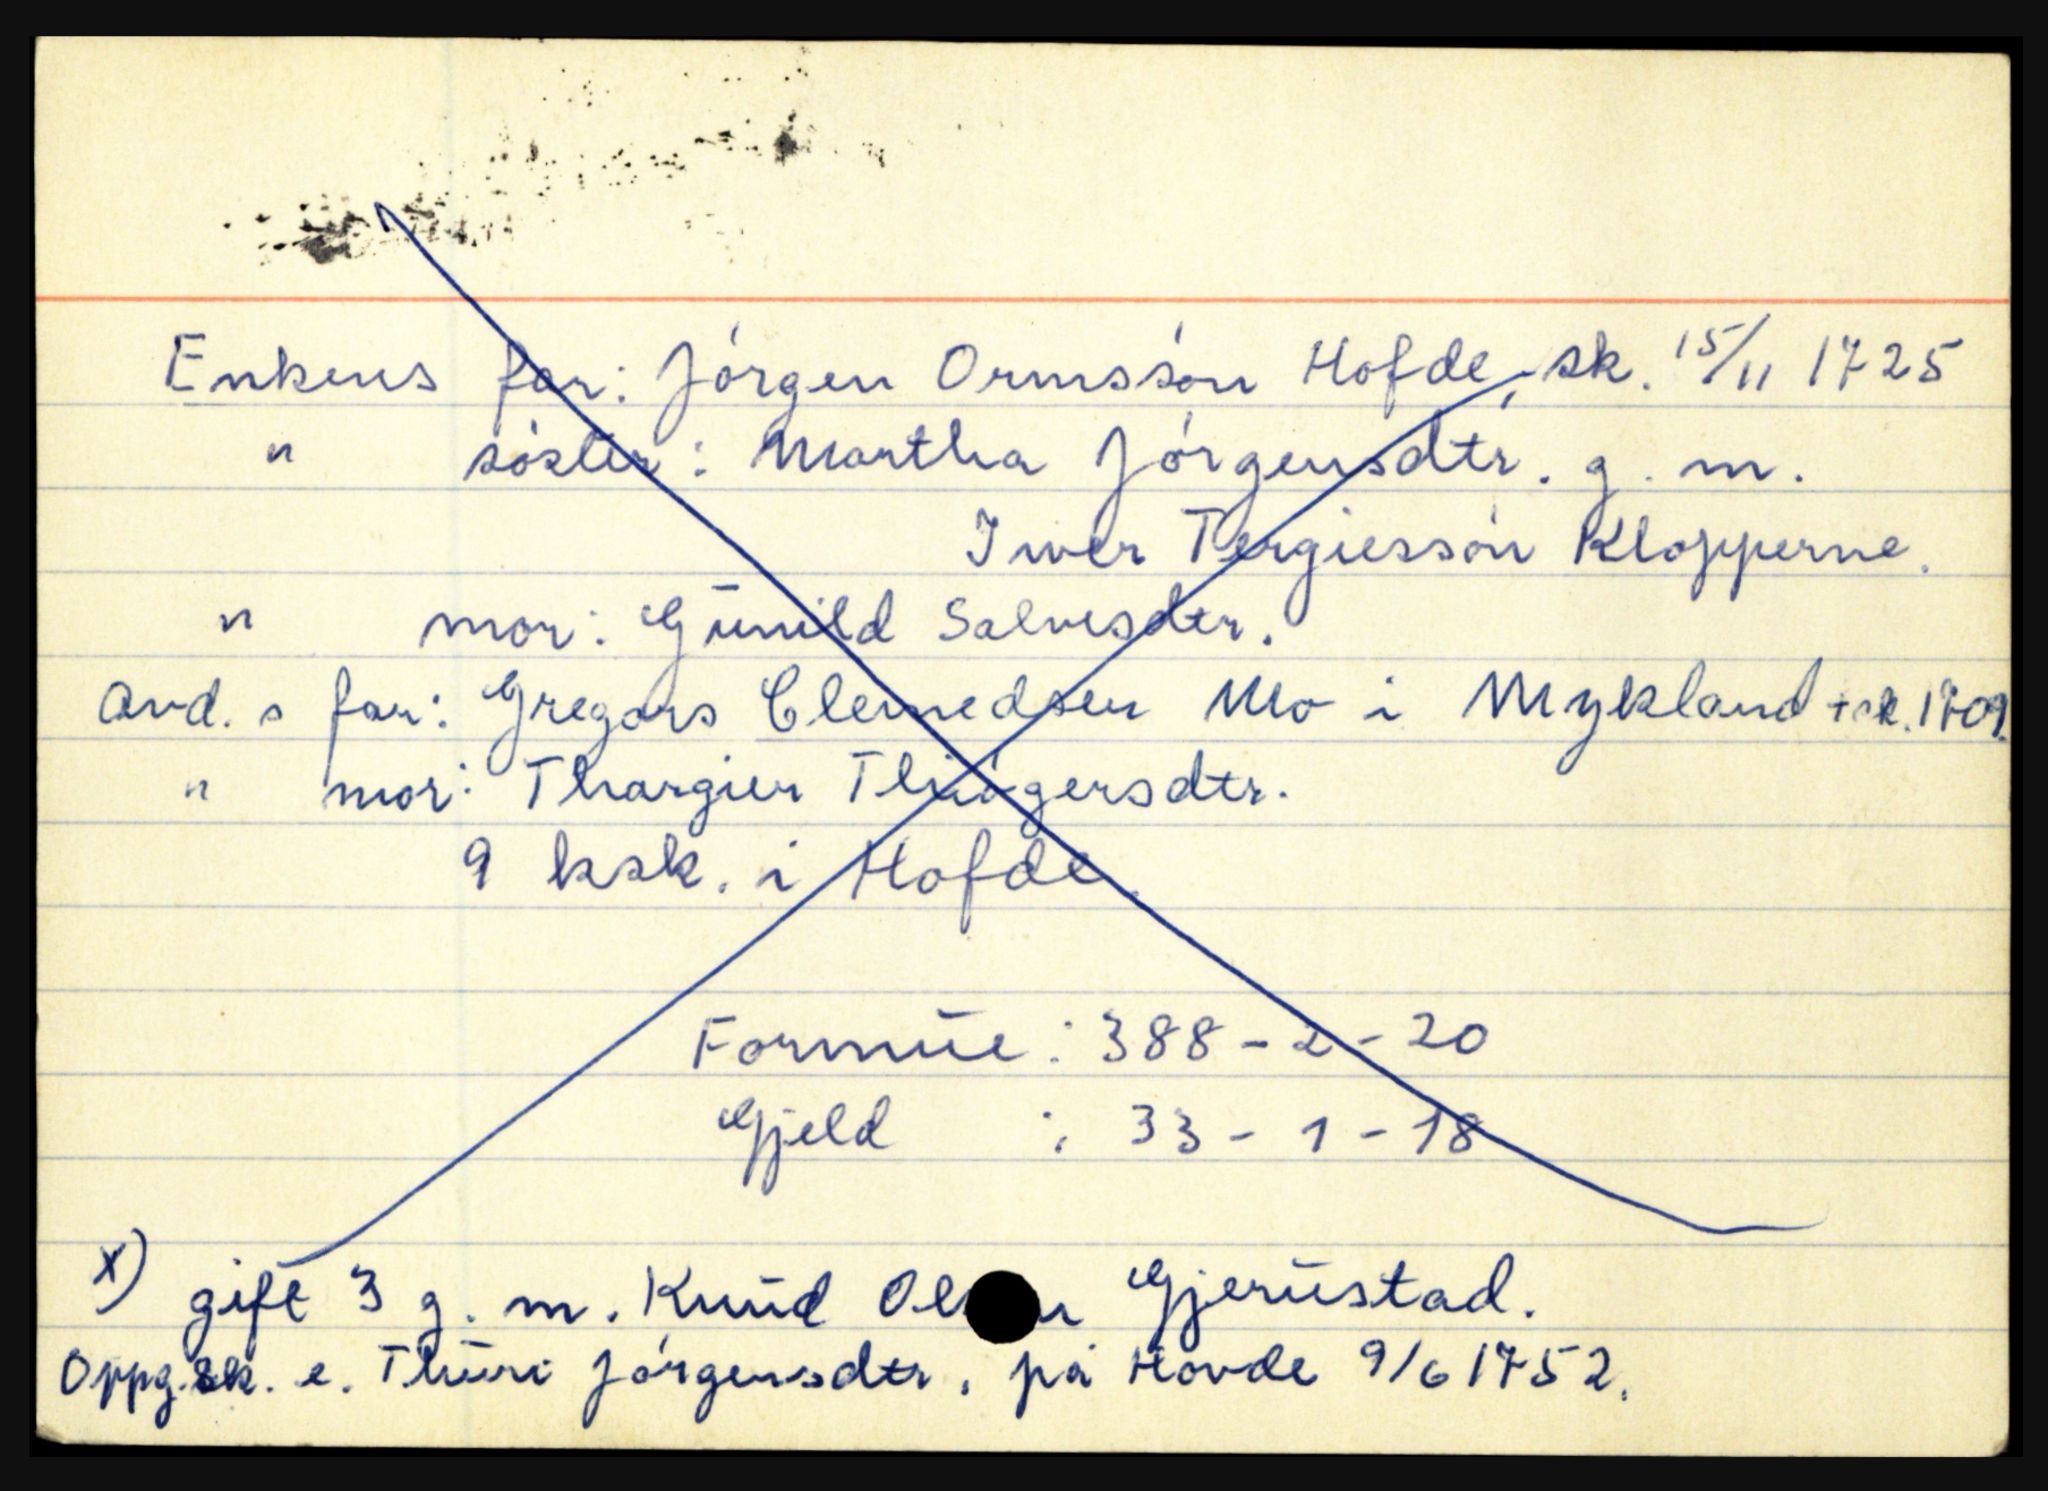 Enkens far: Jórgen Ormssón Hofde, sk. 15/11 1725
" sóster: Martha Jórgensdtr. g. m.
Iwer Tergiessón Klopperne.
" mor: Gunild Salvesdtr.
Avd. s far: Gregars Clemedsen Mo i Mykland + sk. 1709.
" mor: Thargier
9 bsk. i Hofde.
Formue : 388 - 2 - 20
Gjeld : 33 - 1 - 18
x) gift 3 g. m. Knud Gjerustad.
Oppg. sk. e. Thuri Jórgensdtr. på Hovde 9/6 1752.